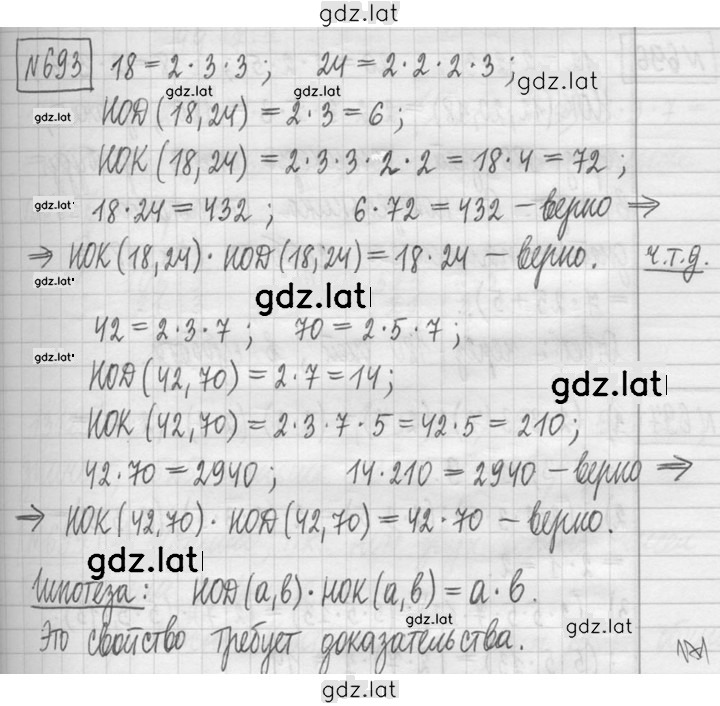 gdz.lat
№693 18 = 2 · 3 · 3 ; 24 = 2 · 2 · 2 · 3 ;
gdz.lat
gdz.lat gdz.lat
gdz.lat НОД (18, 24) = 2 · 3 = 6 ;
НОК (18, 24) = 2 · 3 · 3 · 2 · 2 = 18 · 4 = 72 ;
gdz.lat 18 · 24 = 432 ; 6 · 72 = 432 – верно ⇒
⇒ НОК (18, 24) · НОД (18, 24) = 18 · 24 – верно. ч.т.д.
gdz.lat
gdz.lat
42 = 2 · 3 · 7 ; 70 = 2 · 5 · 7 ;
gdz.lat
НОД (42, 70) = 2 · 7 = 14 ;
gdz.lat
НОК (42, 70) = 2 · 3 · 7 · 5 = 42 · 5 = 210 ;
42 · 70 = 2940 ; 14 · 210 = 2940 – верно ⇒
⇒ НОК (42, 70) · НОД (42, 70) = 42 · 70 – верно.
gdz.lat
Гипотеза : НОД (а, в) · НОК (а, в) = а · в.
gdz.lat
gdz.lat
Это свойство требует доказательства.
gdz.lat